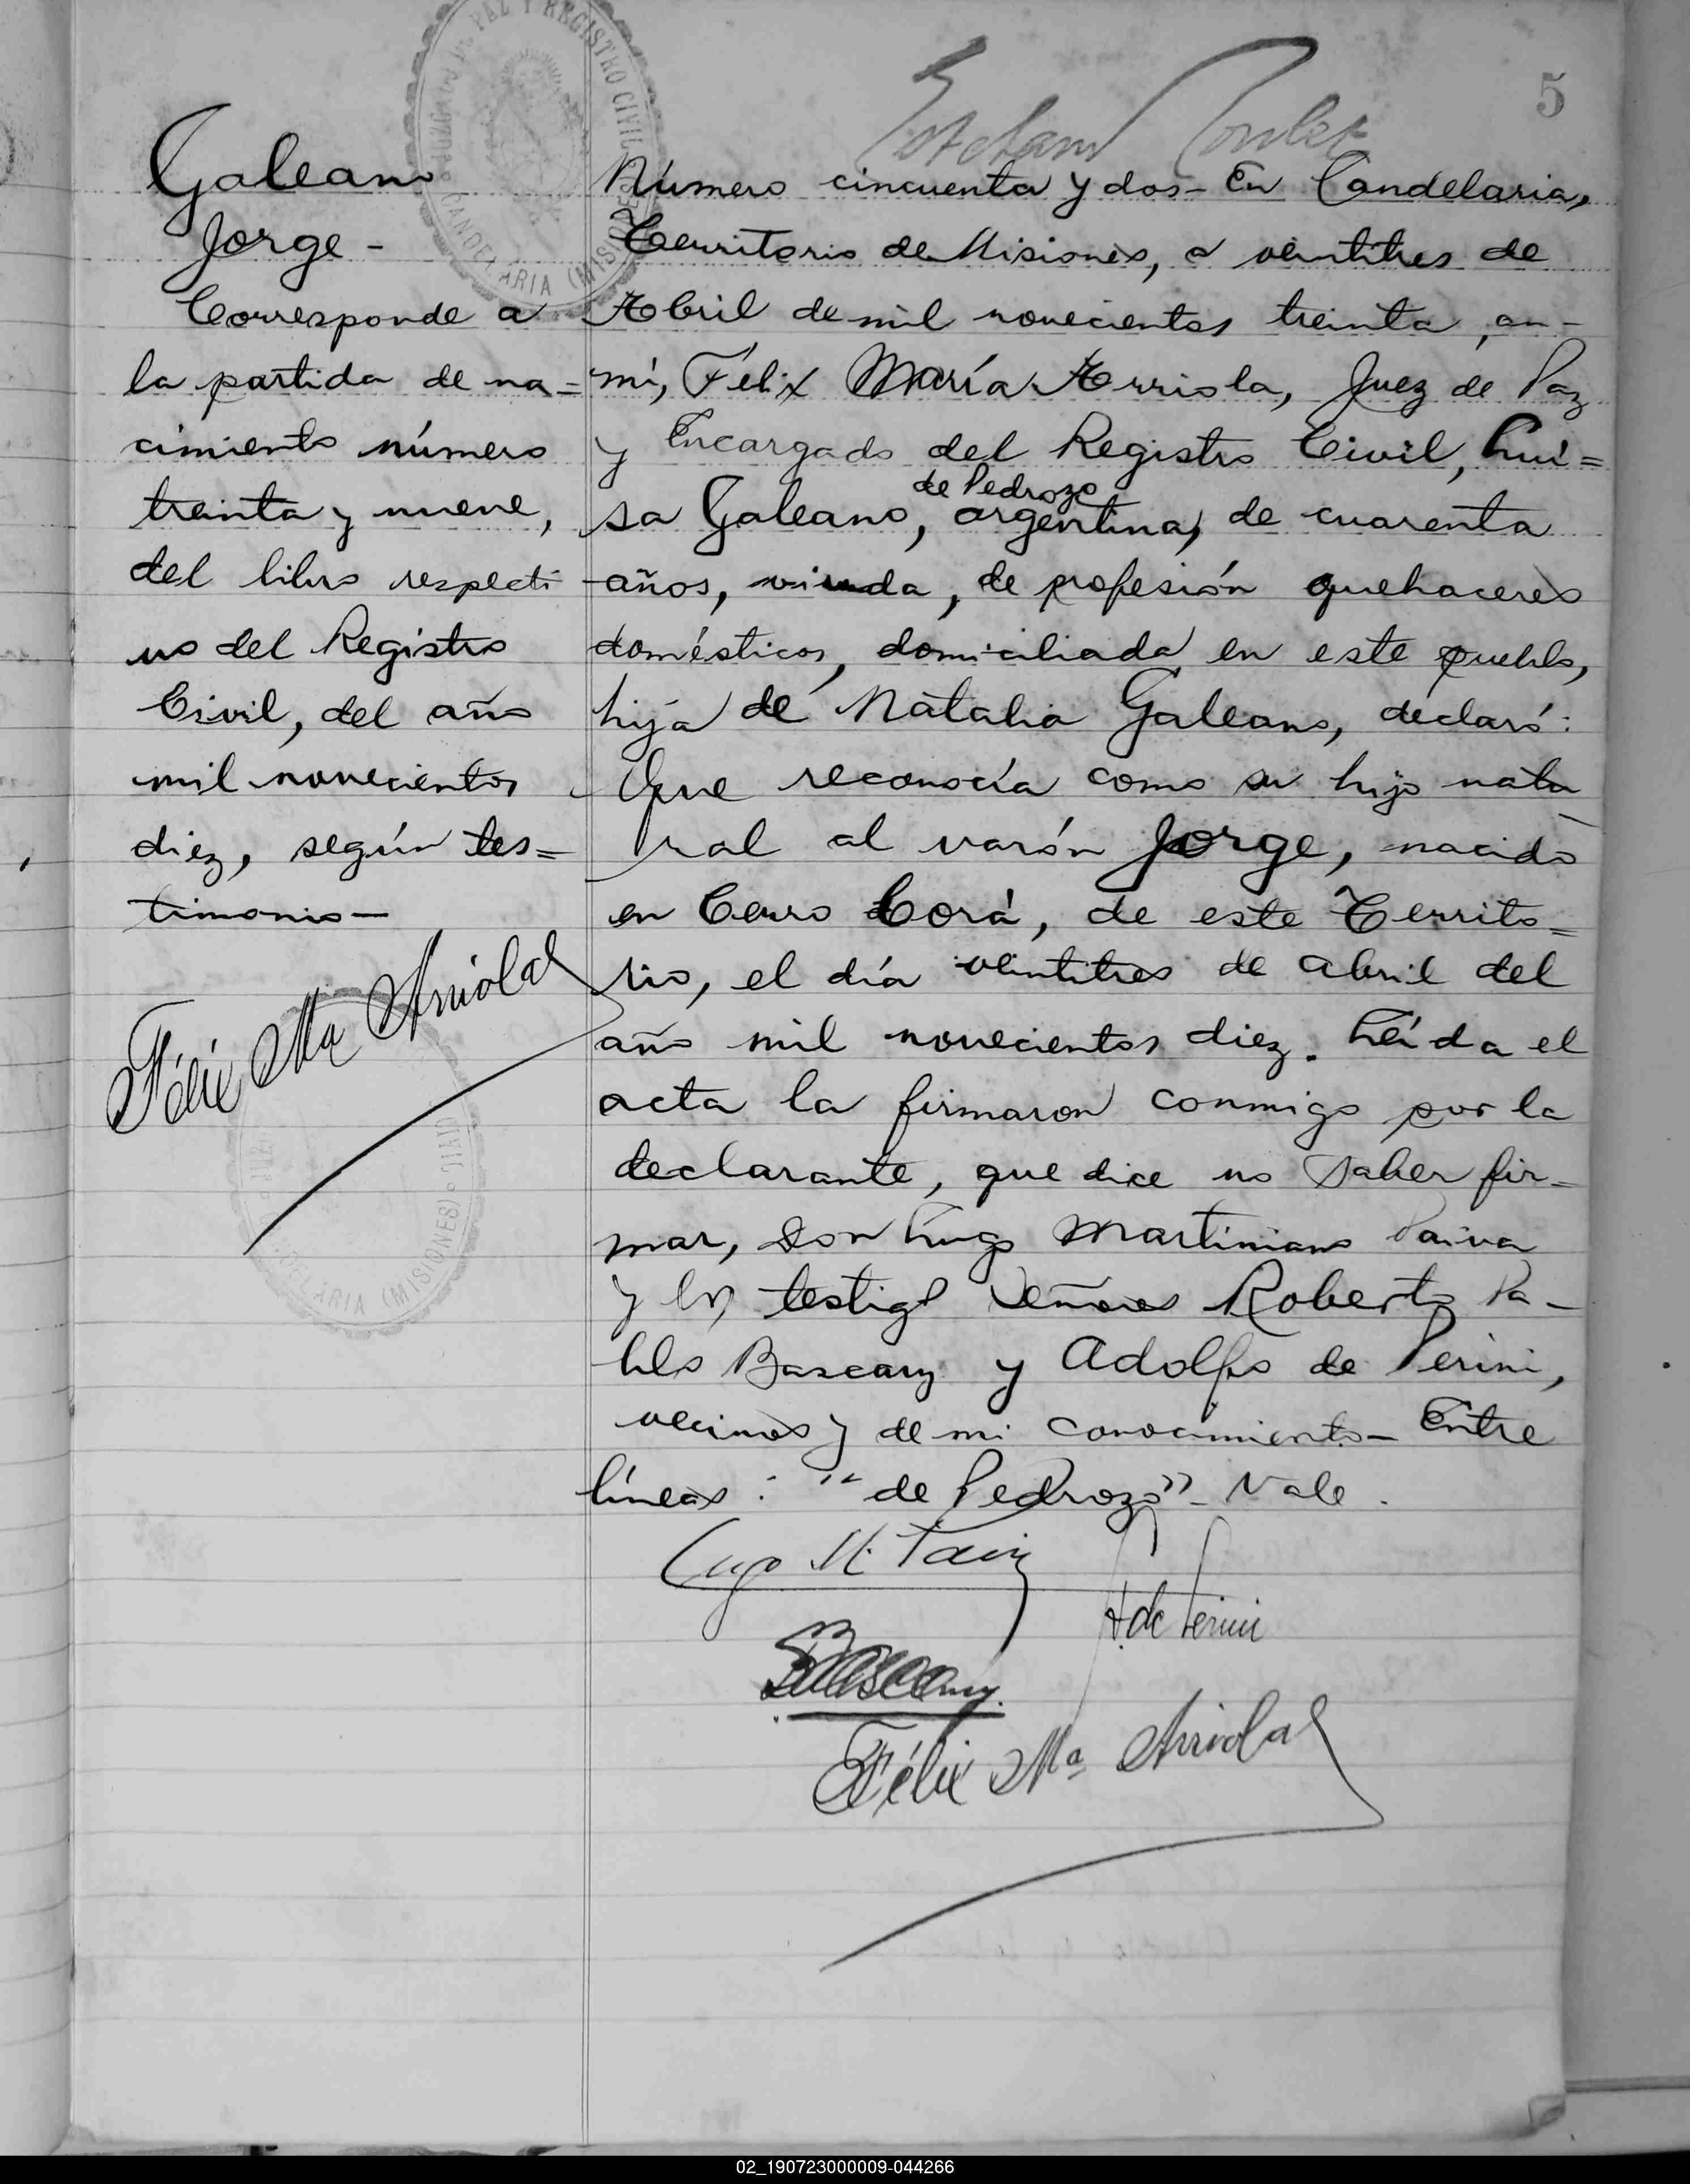 5
JUZGADO DE PAZ Y REGISTRO CIVIL
CANDELARIA (MISIONES)
Galeano
Jorge -
Corresponde a
la partida de na=
cimiento número
treinta y nueve,
del libro respecti
vo del Registro
Civil, del año
mil novecientos
diez, según tes=
timonio—
Félix Ma Arriola
Número cincuenta y dos- En Candelaria,
Territorio de Misiones, a veintitres de
Abril de mil novecientos treinta, an-
mí, Felix María Arriola, Juez de Paz
y Encargado del Registro Civil, Lui=
de Pedrozo
sa Galeano, argentina, de cuarenta
años, viuda, de profesión quehaceres
domésticos, domiciliada en este pueblo,
hija de Natalia Galeano, declaró:
Que reconocía como su hijo natu
ral al varón Jorge, nacido
en Cerro Corá, de este Territo=
rio, el día veintitres de abril del
año mil novecientos diez. Leída el
acta la firmaron conmigo por la
declarante, que dice no saber fir-
mar, don Lugo Martiniano Paiva
y los testigos señores Roberto Pa-
blo Bascary y Adolfo de Perini,
vecinos y de mi conocimiento- Entre
líneas: "de Pedrozo"- Vale.
Lugo M. Paiva
A. de Perini
Bascary
Félix Mª Arriola
02_190723000009-044266